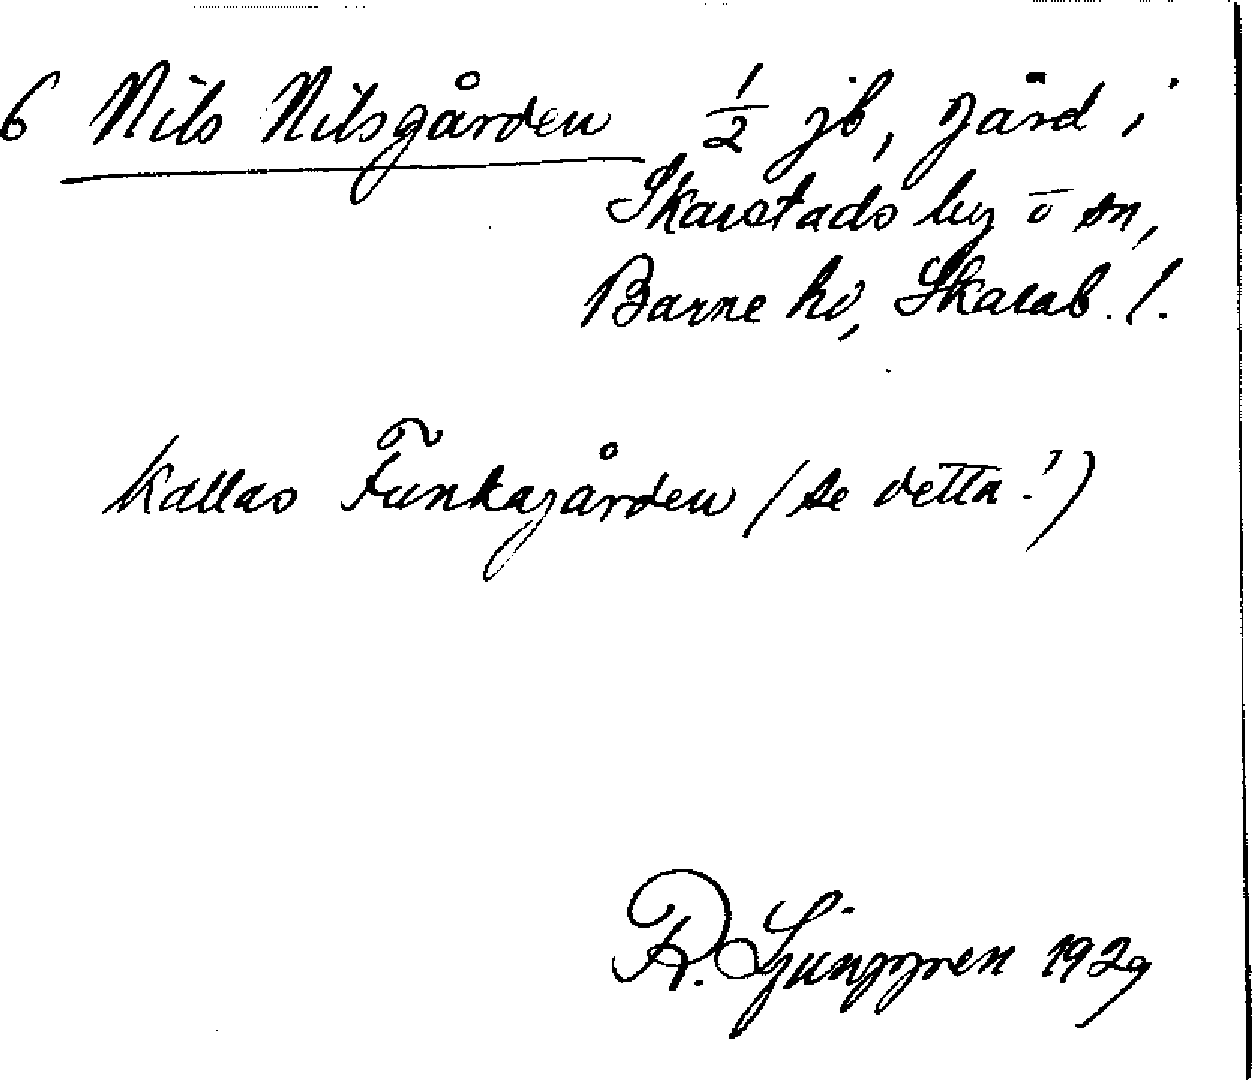 6 Nils Nilsgården 1/2 jb, gård i
Skarstads by ō sn,
Barne hd, Skarab. l.
kallas Funkagården (se detta!)
R. Ljunggren 1929